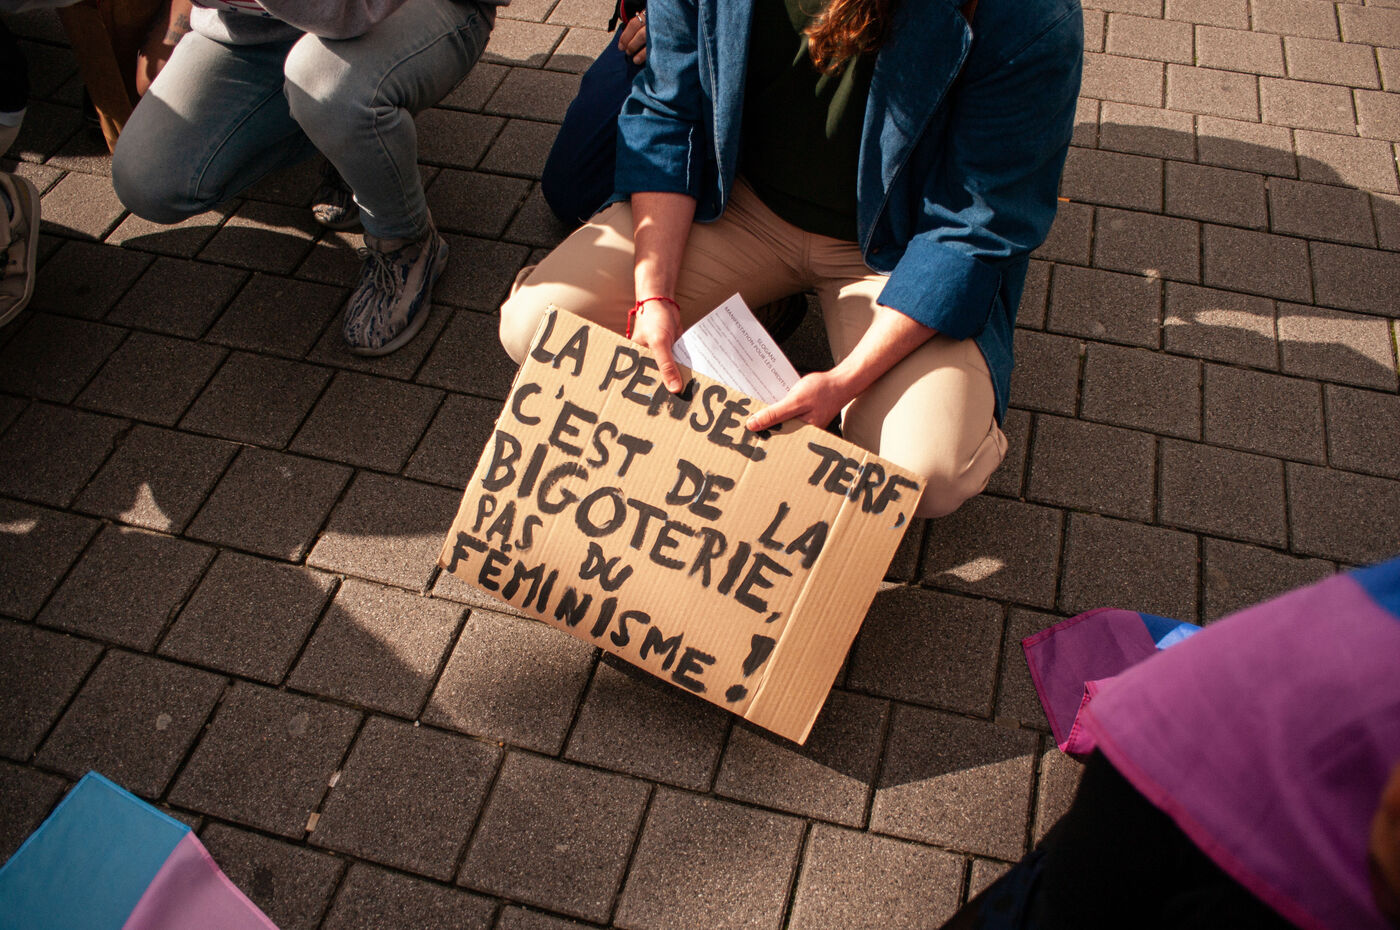 SLOGANS
MANIFESTATION POUR LES DROITS
LA PENSÉE TERF,
C'EST DE LA
BIGOTERIE,
PAS DU
FÉMINISME !